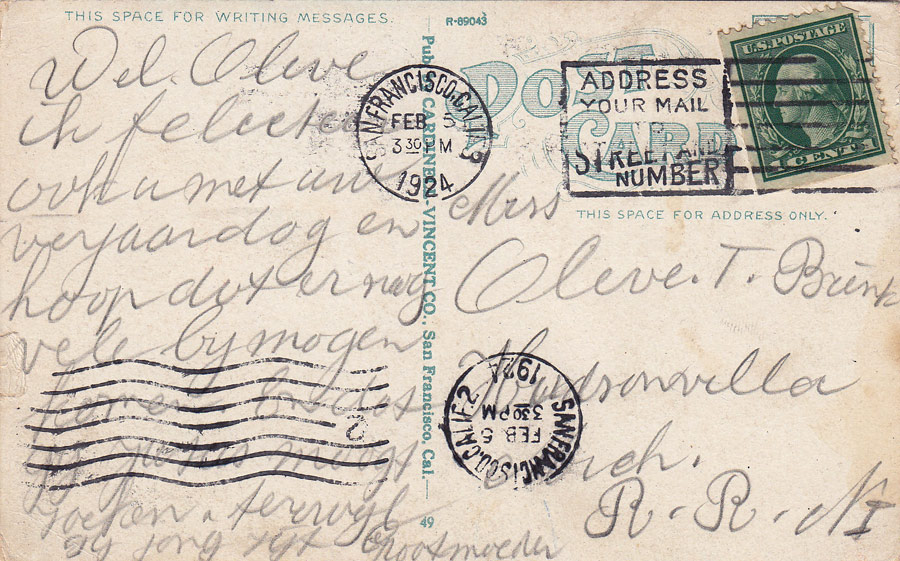 THIS SPACE FOR WRITING MESSAGES.
Wel. Olive
ik felicteer
ook u met uwe
verjaardag en
hoop dat er nog
vele by mogen
komen en dat
gy Jezus moogt
zoeken. terwyl
gy jong zyt Grootmoeder
R-89043
Pub. CARDINELL-VINCENT CO., San Francisco, Cal.
49
SAN FRANCISCO, CALIF.
FEB 5
3 30 PM
1924
POST
CARD
ADDRESS
YOUR MAIL
TO
STREET AND
NUMBER
U.S. POSTAGE
1 CENT 1
THIS SPACE FOR ADDRESS ONLY.
Miss
Olive. T. Brink
Hudsonvilla
Mich.
R. R. N I
SAN FRANCISCO, CALIF. 2
FEB 5
3 30 PM
1924